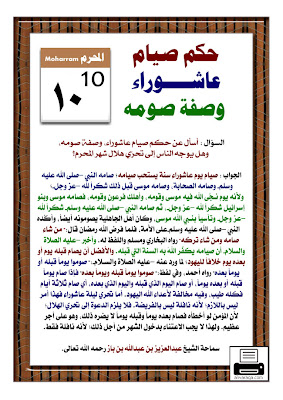 حكم صيام
عاشوراء
وصفة صومه
المحرم Moharram
10
١٠
السؤال : أسأل عن حكم صيام عاشوراء، وصفة صومه،
وهل يوجه الناس إلى تحري هلال شهر المحرم؟
الجواب : صيام يوم عاشوراء سنة يستحب صيامه؛ صامه النبي -صلى الله عليه
وسلم، وصامه الصحابة، وصامه موسى قبل ذلك شكرا لله -عز وجل-
ولأنه يوم نجى الله فيه موسى وقومه، وأهلك فرعون وقومه، فصامه موسى وبنو
إسرائيل شكرا لله -عز وجل-، ثم صامه النبي -صلى الله عليه وسلم- شكرا لله
-عز وجل- وتأسيا بنبي الله موسى، وكان أهل الجاهلية يصومونه أيضا، وأكده
النبي -صلى الله عليه وسلم على الأمة، فلما فرض الله رمضان قال: من شاء
صامه ومن شاء تركه، رواه البخاري ومسلم واللفظ له، وأخبر -عليه الصلاة
والسلام- أن صيامه يكفر الله به السنة التي قبله، والأفضل أن يصام قبله يوم أو
بعده يوم خلافا لليهود؛ لما ورد عنه -عليه الصلاة والسلام-: صوموا يوما قبله أو
يوما بعده؛ رواه أحمد، وفي لفظ: صوموا يوما قبله ويوما بعده؛ فإذا صام يوما
قبله أو بعده يوما، أو صام اليوم الذي قبله واليوم الذي بعده، أي صام ثلاثة أيام
فكله طيب، وفيه مخالفة لأعداء الله اليهود. أما تحري ليلة عاشوراء فهذا أمر
ليس باللازم؛ لأنه نافلة ليس بالفريضة، فلا يلزم الدعوة إلى تحري الهلال؛
لأن المؤمن لو أخطأه فصام بعده يوما وقبله يوما لا يضره ذلك، وهو على أجر
عظيم. ولهذا لا يجب الاعتناء بدخول الشهر من أجل ذلك؛ لأنه نافلة فقط.
سماحة الشيخ عبدالعزيز بن عبدالله بن باز رحمه الله تعالى.